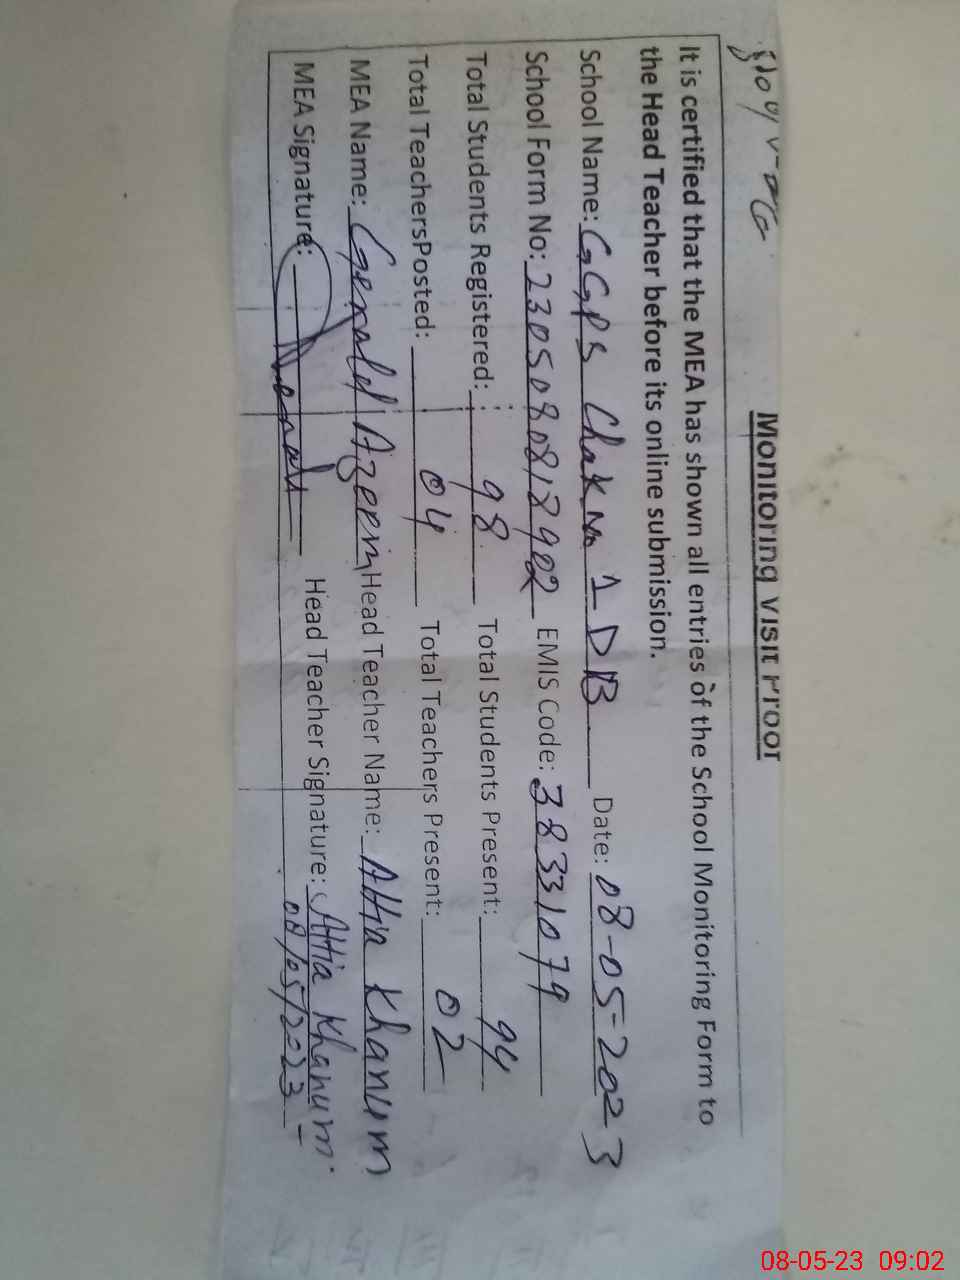 Monitoring Visit Proof
It is certified that the MEA has shown all entries of the School Monitoring Form to
the Head Teacher before its online submission.
School Name: GGPS Chak No 1 DB Date: 08-05-2023
School Form No: 2305080818902 EMIS Code: 38331079
Total Students Registered: 98 Total Students Present: 94
Total TeachersPosted: 04 Total Teachers Present: 02
MEA Name: Gerald Azeem Head Teacher Name: Attia Khanum
MEA Signature: Head Teacher Signature: Attia Khanum
08/05/2023
08-05-23 09:02